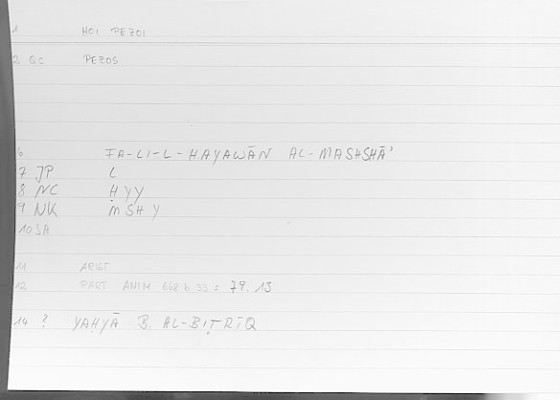 1 HOI PEZOI
2 GC PEZOS
6 FA-LI-L-HAYAWĀN AL-MASHSHĀ'
7 JP L
8 NC ḤYY
9 NK MSHY
10 SH
11 ARIST
12 PART ANIM 668 b 33 = 79.13
14 ? YAḤYĀ B. AL-BIṬRĪQ